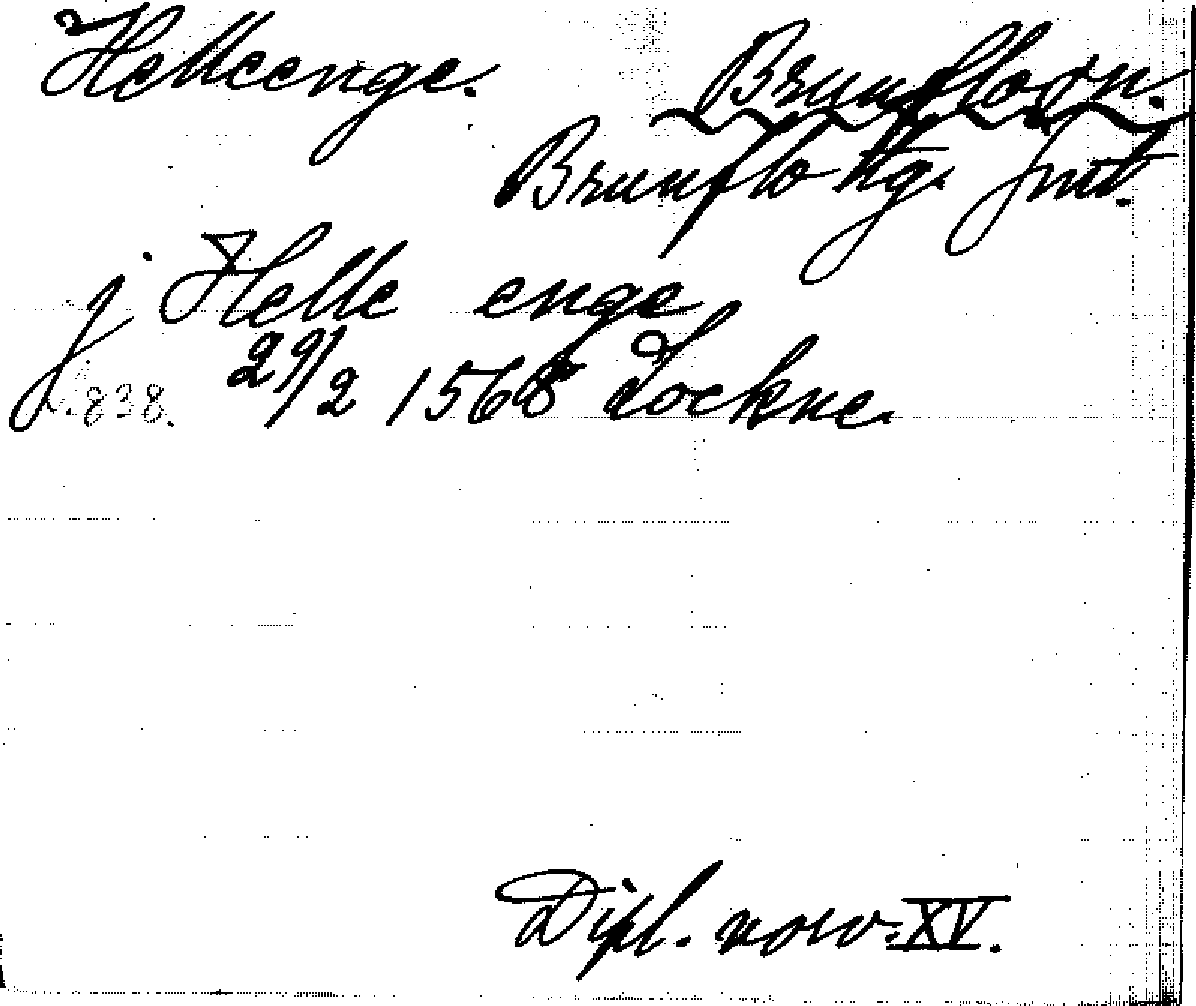 Helleenge. Brunflo sn.
Brunflo tg. Jmt.
j Helle enge
838. 29/2 1568 Lockne.
Dipl. norv. XV.